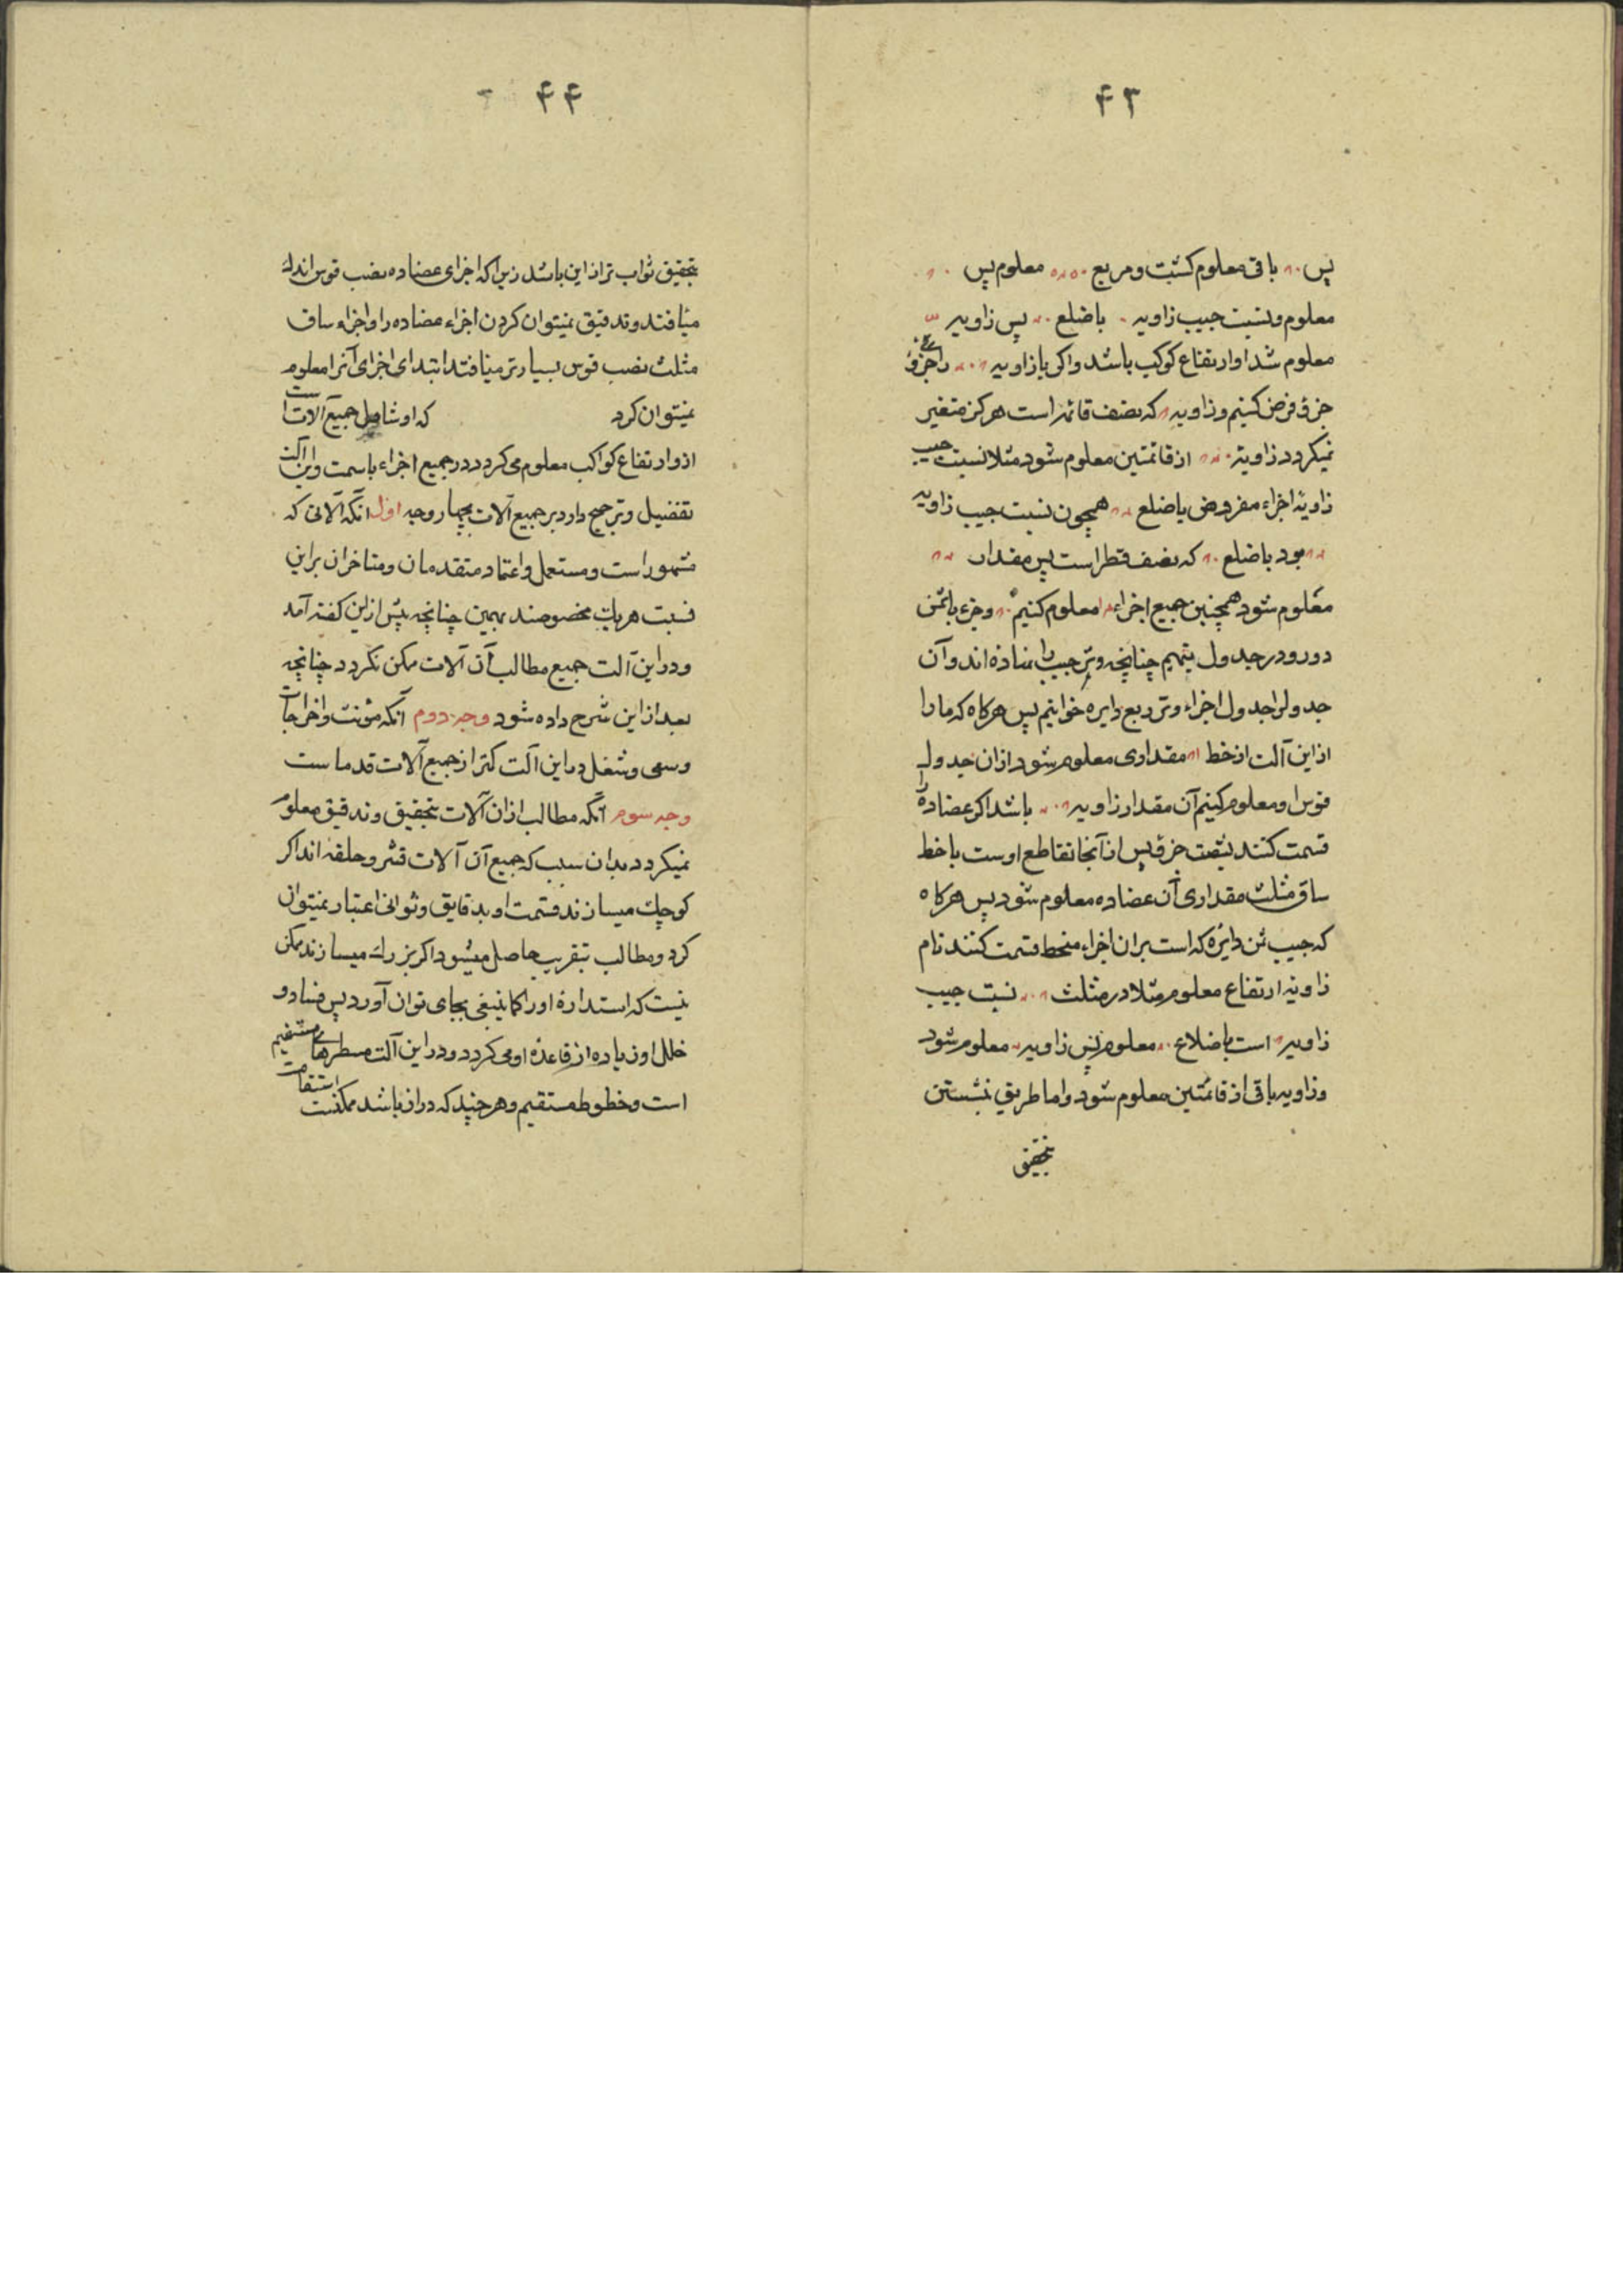 ۴۳
پس باقی معلوم کشت و مربع معلوم پس
معلوم و نسبت جیب زاویه باضلع پس زاویه
معلوم شد او ارتفاع کوکب باشد و اکر با زاویه را جزؤ
جزؤ فرض کنیم و زاویه که نصف قائمه است هرکز متغیر
نمیکردد زاویه از قائمتین معلوم شود مثلا نسبت جیب
زاویهٔ اجزاء مفروض باضلع همچون نسبت جیب زاویه
بود باضلع که نصف قطر است پس مقدار
معلوم شود همچنین جمیع اجزاء معلوم کنیم وجزء باثمن
دورو در جدول بنهیم چنانچه وتر جیب را نهاده اند و آن
جدول را جدول اجزاء وتر ربع دایره خوانیم پس هرکاه که ما را
از این آلت از خط مقداری معلوم شود از ان جدول
قوس او معلوم کنیم آن مقدار زاویه باشد اکر عضاده را
قسمت کنند بشصت جزؤ پس از آنجا تقاطع اوست با خط
ساق مثلث مقداری آن عضاده معلوم شود پس هرکاه
که جیب ثمن دایره که است بران اجزاء منحط قسمت کنند تام
زاویه ارتفاع معلوم مثلا در مثلث نسبت جیب
زاویه است باضلاع معلوم پس زاویه معلوم شود
و زاویه باقی از قائمتین معلوم شود و اما طریق نشستن
بتحقیق
۴۴
بتحقیق ثواب تر از این باشد زیرا که اجزای عضاده نصب قوس اندک
میافتد و تدقیق نمیتوان کردن اجزاء عضاده را و اجزاء ساق
مثلث نصب قوس بسیارتر میافتد ابتدای اجزای آنرا معلوم
نمیتوان کرد که او شامل جمیع آلات است
از و ارتفاع کواکب معلوم می کردد در جمیع اجزاء باسمت و این آلت
تفضیل و ترجیح دارد بر جمیع آلات بچهار وجه اول انکه آلاتی که
مشهور است و مستعمل و اعتماد متقدمان و متاخران بر این
نسبت هر یک مخصوصند بهمین چنانچه پیش از این کفته آمد
و در این آلت جمیع مطالب آن آلات ممکن نکردد چنانچه
بعد از این شرح داده شود وجه دوم آنکه مؤنت و اخراجات
و سعی و شغل در این آلت کمتر از جمیع آلات قدما ست
وجه سوم آنکه مطالب از ان آلات بتحقیق و تدقیق معلوم
نمیکردد بدان سبب که جمیع آن آلات قشر و حلقه اند اکر
کوچک میسازند قسمت او بدقایق و ثوانی اعتبار نمیتوان
کرد و مطالب بتقریب حاصل میشود اکر بزرک میسازند ممکن
نیست که استدارهٔ او را کما ینبغی بجای توان آورد پس فساد و
خلل او زیاده از قاعدهٔ او می کردد و در این آلت مسطرهای مستقیم
است و خطوط مستقیم و هر چند که دراز باشد ممکنست استقامت